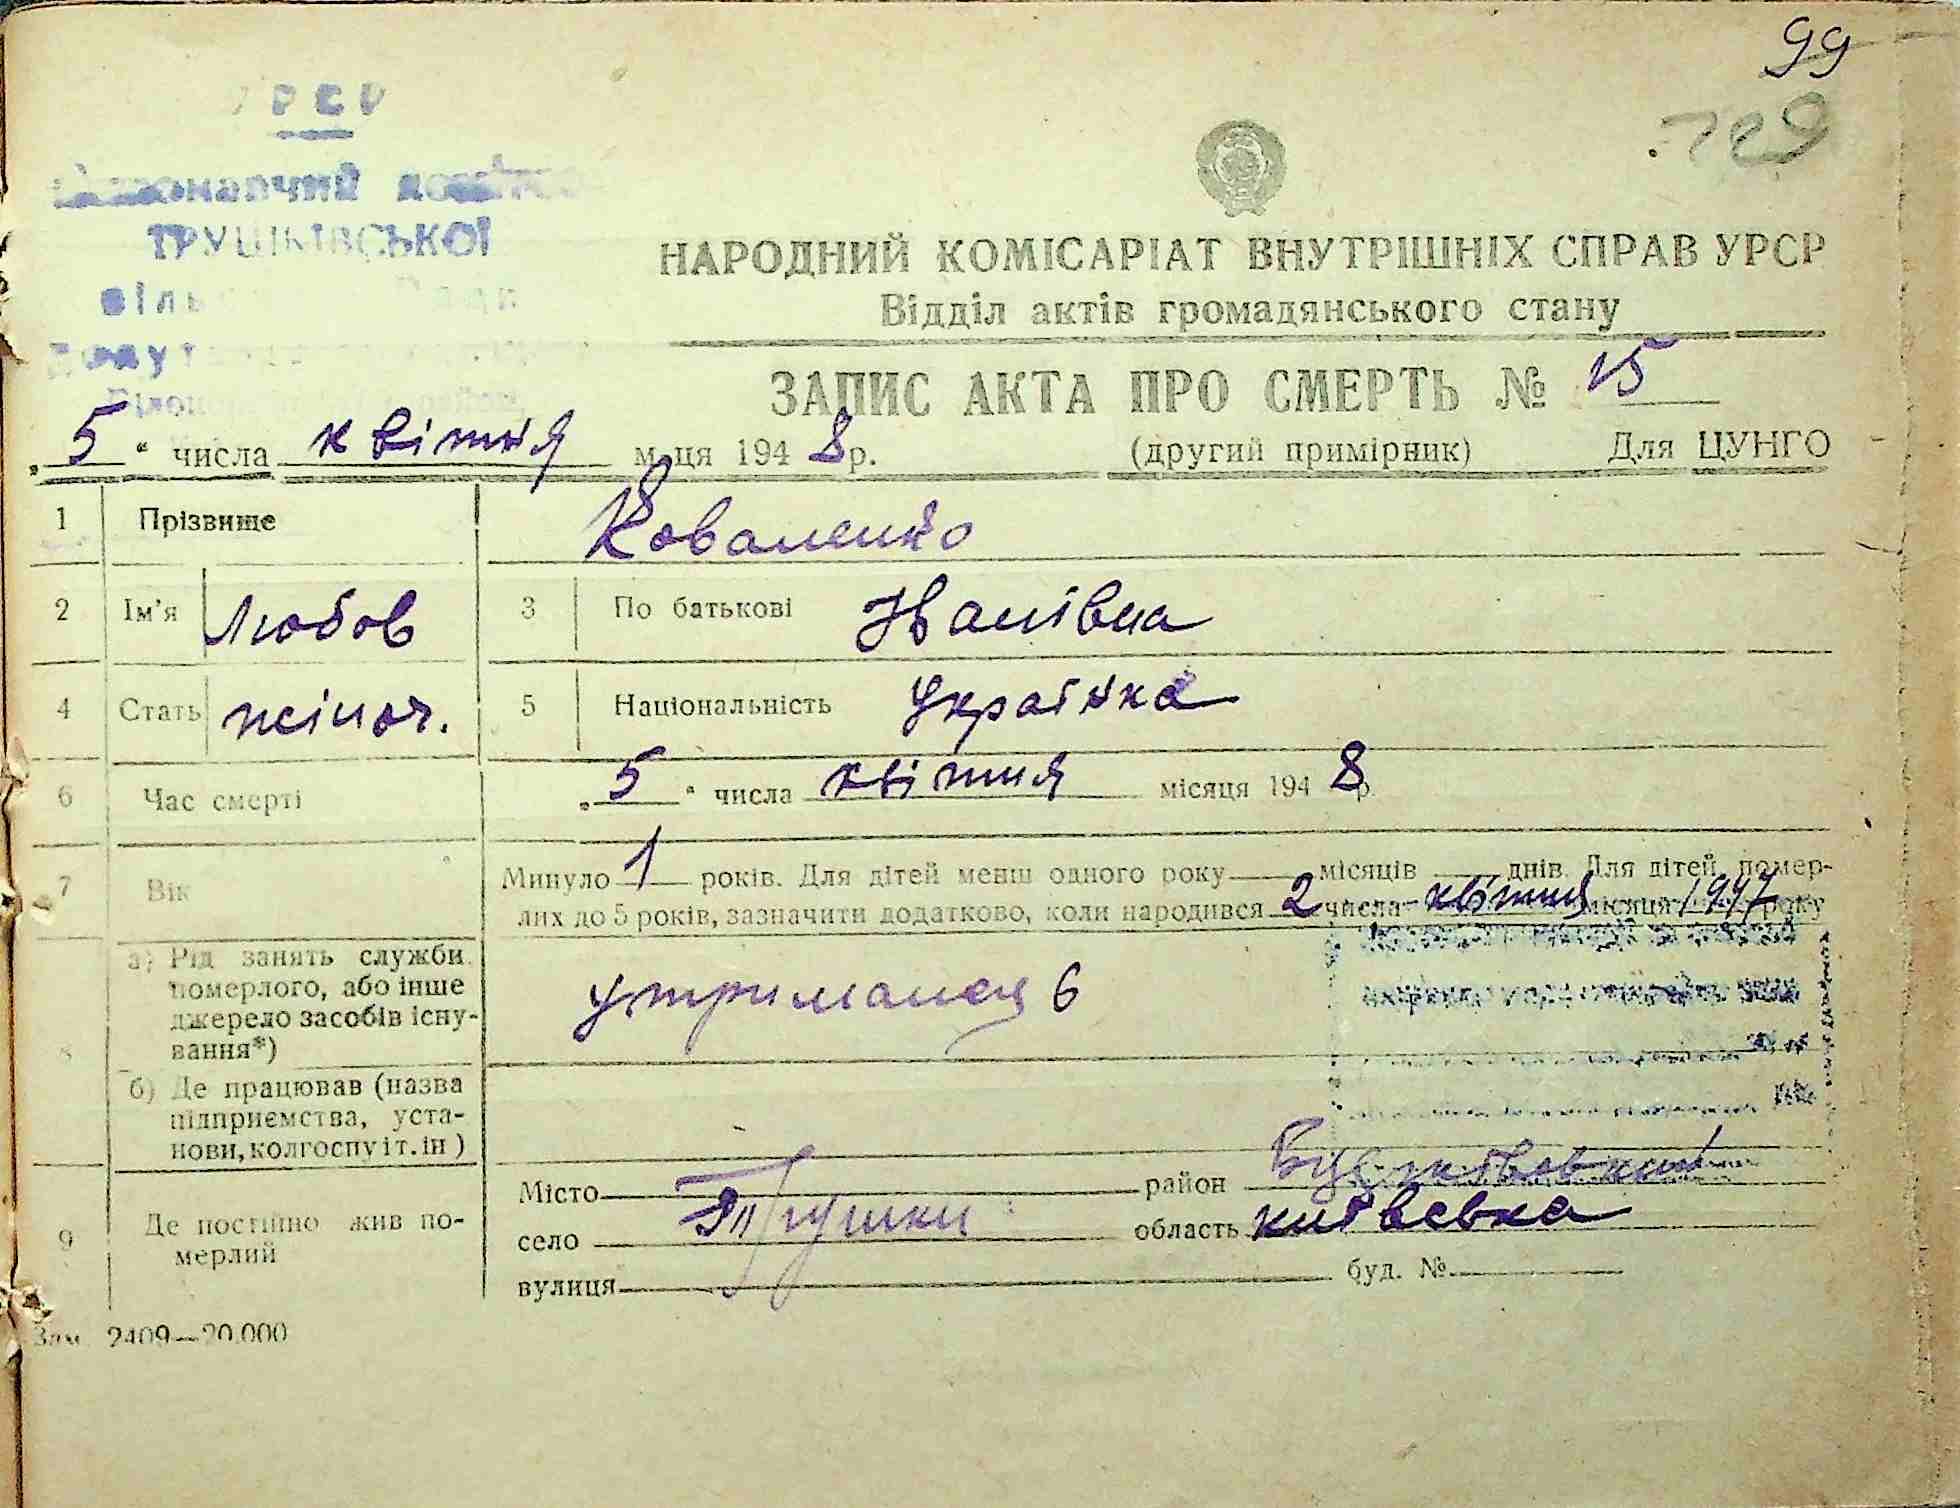 99
УРСР
Виконавчий комітет
ТРУШКІВСЬКОЇ
НАРОДНИЙ КОМІСАРІАТ ВНУТРІШНІХ СПРАВ УРСР
Відділ актів громадянського стану
ЗАПИС АКТА ПРО СМЕРТЬ № 15
„5" числа квітня м-ця 1948 р. (другий примірник) Для ЦУНГО
1 Прізвище Коваленко
2 Ім'я Любов 3 По батькові Іванівна
4 Стать жіноч. 5 Національність Українка
6 Час смерті „5" числа квітня місяця 1948 р.
7 Вік Минуло 1 років. Для дітей менш одного року — місяців — днів. Для дітей, помер-
лих до 5 років, зазначити додатково, коли народився 2 числа квітня місяця 1947 року
8 а) Рід занять служби
померлого, або інше
джерело засобів існу-
вання*) утриманець
б) Де працював (назва
підприємства, уста-
нови, колгоспу і т. ін)
9 Де постійно жив по-
мерлий
Місто район
село Трушки область київська
вулиця буд. №
Зам. 2409—20.000